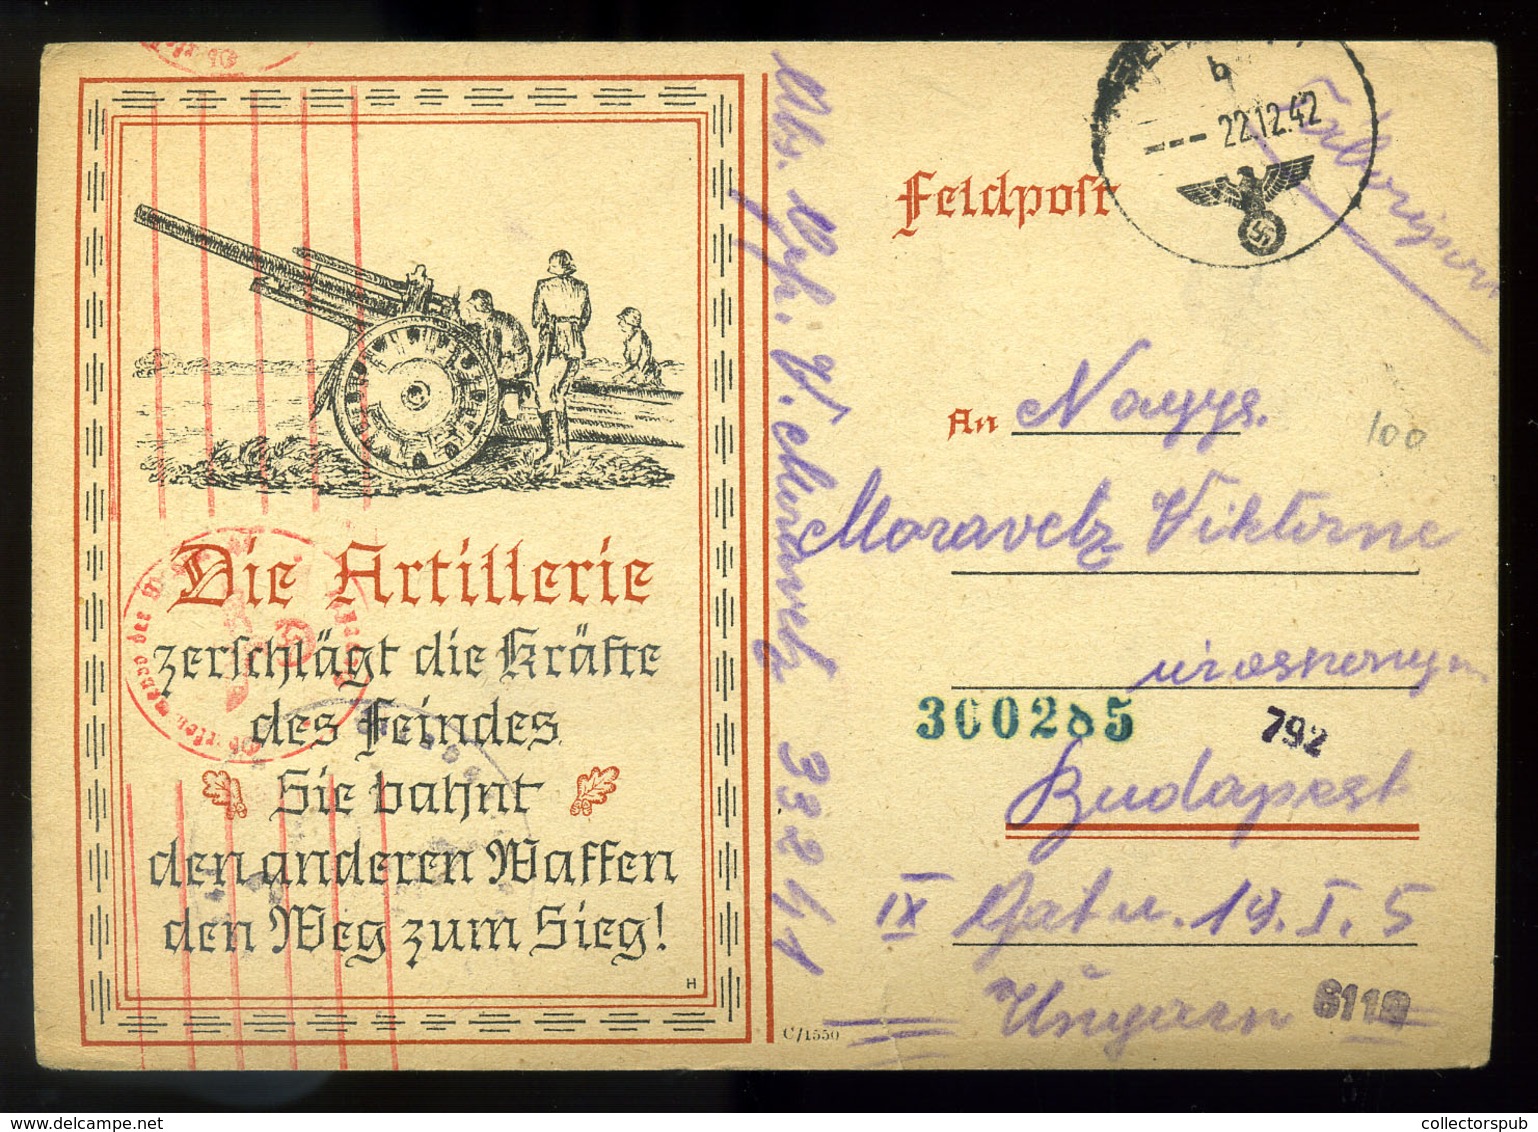 Die Artillerie
zerschlägt die Kräfte
des Feindes
Sie bahnt
den anderen Waffen
den Weg zum Sieg!
H
C/1550
Abs. V. Moravetz 33241
b
22.12.42
Feldpost
100
An Nagys.
Moravetz Viktorne
300285
792
Budapest
IX Gat u. 19. I. 5
Ungarn
6119
collectorspub